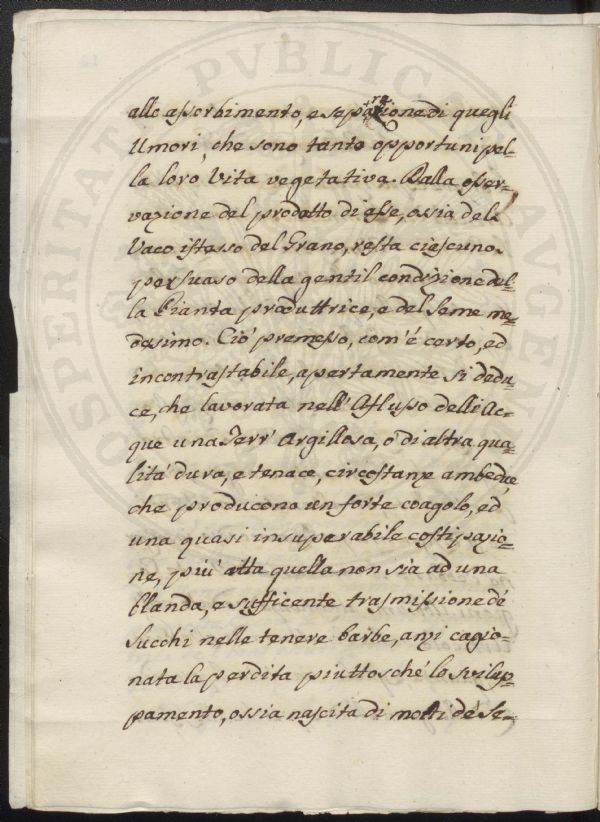 allo assorbimento, e separazione di quegli
Umori, che sono tanto opportuni pel=
la loro Vita vegetativa. Dalla osser=
vazione del prodotto di esse, ossia del
Vaco istesso del Grano, resta ciascuno
persuaso della gentil condizione del=
la Pianta produttrice, e del Seme me=
desimo. Ciò premesso, com'é certo, ed
incontrastabile, apertamente si dedu=
ce, che lavorata nell'Aflusso delli Ac=
que una Terr' Argillosa, o' di altra qua=
lità dura, e tenace, circostanze ambedue,
che producono un forte coagolo, ed
una quasi insuperabile costipazio=
ne, più atta quella non sia ad una
blanda, e sufficente trasmissione dé
Succhi nelle tenere barbe, anzi cagio=
nata la perdita piuttosché lo svilup=
pamento, ossia nascita di molti dé Se=